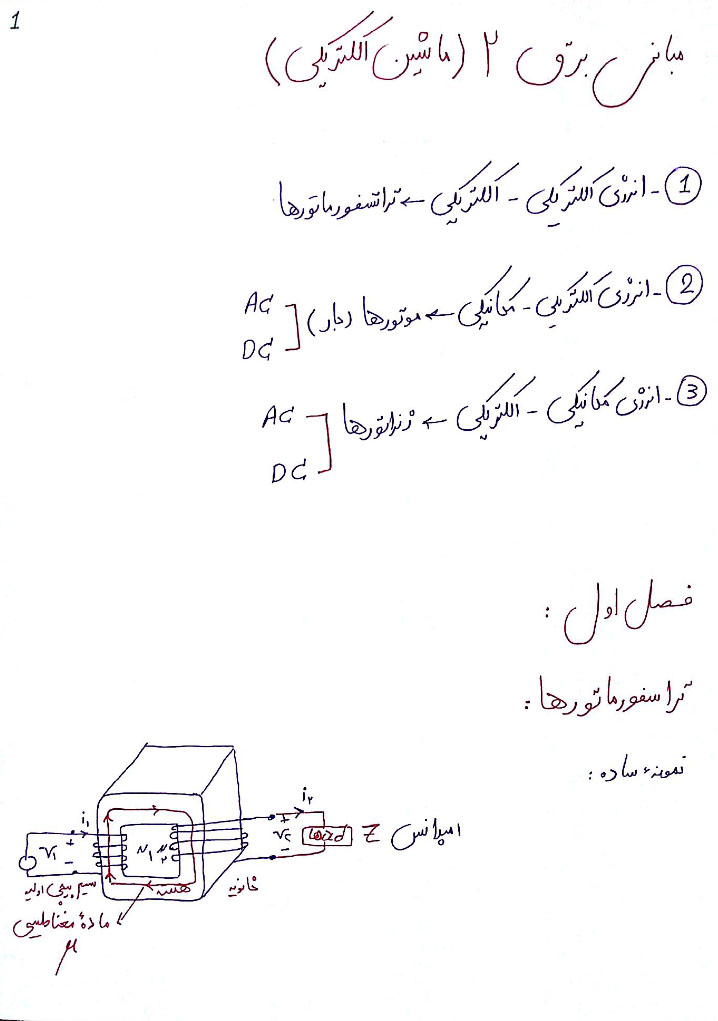 1
مبانی برق ۲ (ماشین الکتریکی)
① - انرژی الکتریکی - الکتریکی ← ترانسفورماتورها
② - انرژی الکتریکی - مکانیکی ← موتورها (بار)
AC
DC
③ - انرژی مکانیکی - الکتریکی ← ژنراتورها
AC
DC
فصل اول :
تراسفورماتورها :
نمونهٔ ساده :
i۱
i۲
+ V۱ -
N۱ N۲
+ V۲ -
Load Z امپدانس
سیم پیچی اولیه
هسته
ثانویه
مادهٔ مغناطیسی
μ